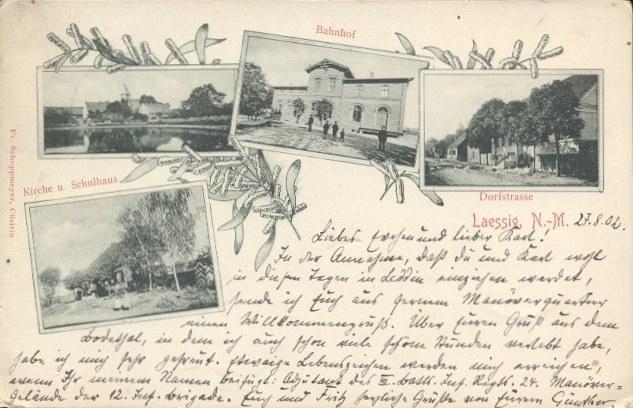 Bahnhof
Kirche u. Schulhaus
Dorfstrasse
Fr. Schroppmeyer, Cüstrin
Laessig, N.-M. 27.8.02.
Liebes und lieber Karl!
In der Annahme, daß du und Karl wohl
in diesen Tagen in einziehen werdet,
sende ich Euch aus Manöverquartier
einen Willkommengruß. Über Euren Gruß aus dem
Bodethal, in dem ich auch schon viele schöne Stunden verlebt habe,
habe ich mich sehr gefreut. Etwaige Lebenszeichen werden mich erreichen,
wenn Ihr meinem Namen beifügt: Adjutant des III. Batl. Inf. Regts. 24. Manöver-
Gelände der 12. Inf. Brigade. Euch und Fritz herzliche Grüße von Eurem Günther.